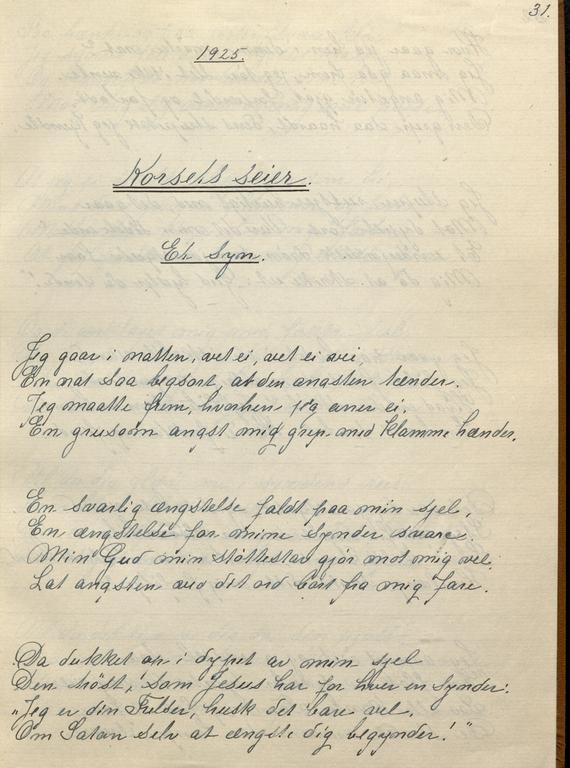 31.
1925.
Korsets seier.
Et Syn.
Jeg gaar i natten, vet ei, vet ei vei,
En nat saa begsort, at den angsten tænder.
Jeg maatte frem, hvorhen jeg aner ei.
En grusom angst mig grep med klamme hænder.
En svarlig ængstelse faldt paa min sjel,
En ængstelse for mine synder svare.
Min Gud min støttestav gjør mot mig vel.
Lat angsten ved dit ord bort fra mig fare.
Da dukket op i dypet av min sjel
Den trøst, som Jesus har for hver en synder:
"Jeg er din Fulder, husk det bare vel,
Om Satan selv at ængste dig begynder!"